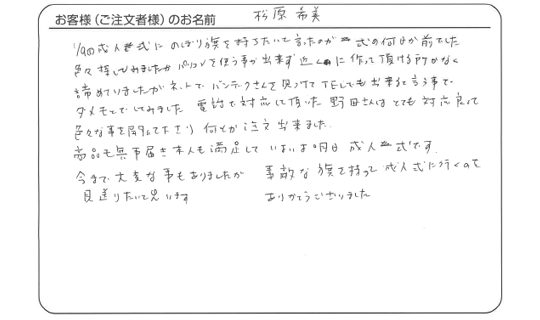 お客様(ご注文者様)のお名前 杉原 希美
1/9の成人式にのぼり旗を持ちたいて言ったのが 式の何日か前でした
色々探してみましたがパソコンを使う事が出来ず近くに作って頂ける所がなく
諦めていましたがネットでバンテクさんを見つけてTELしても出来ると言う事で
ダメモトでしてみました 電話で対応して頂いた野田さんはとても対応良くて
色々な事を聞いて下さり 何とか注文出来ました。
商品も無事届き本人も満足して いよいよ明日 成人式です。
今まで大変な事もありましたが 素敵な旗を持って成人式に行くのを
見送りたいと思います ありがとうございました